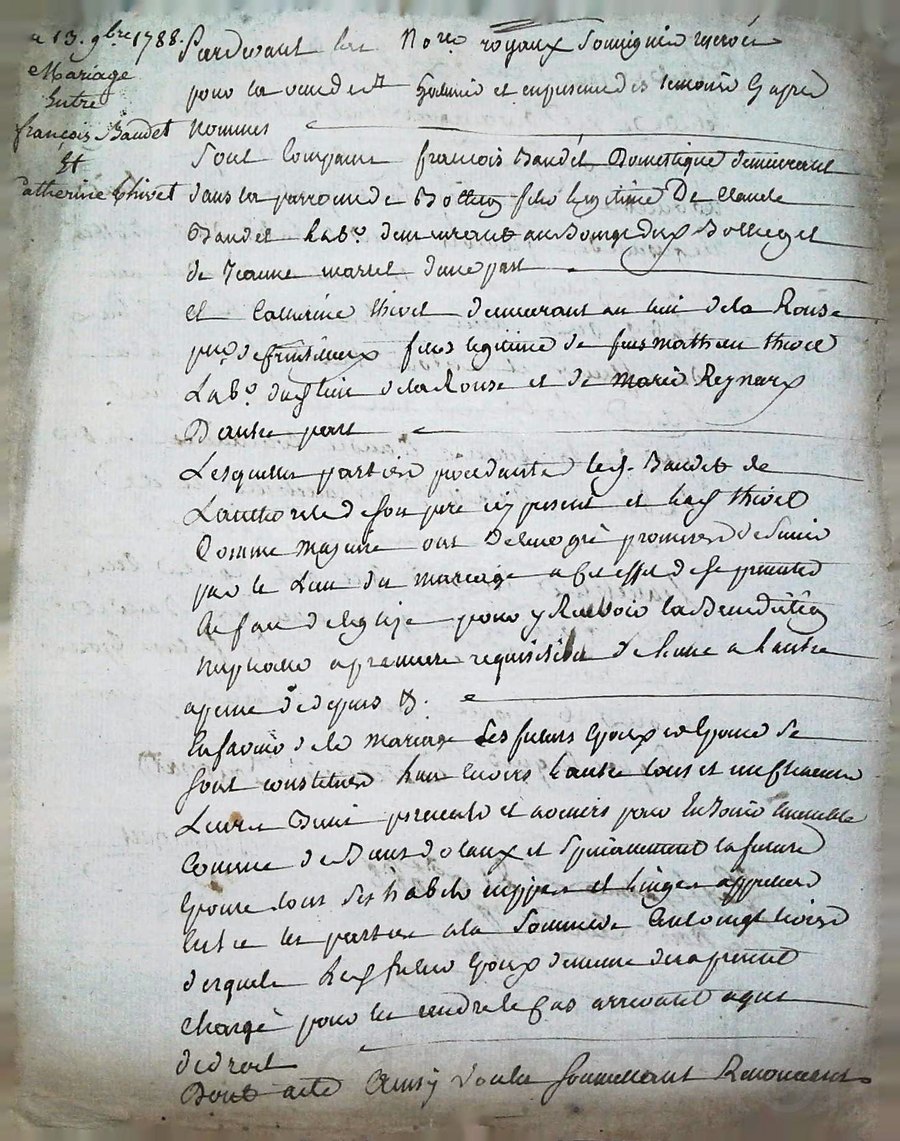 13. 9bre 1788.
Mariage
Entre
françois Baudet
Et
Catherine thivet
Pardevant les No.re royaux soussignés
pour la et en presence des temoins
nommes
Sont françois Baudet Domestique demeurant
dans la parroisse de fils legitime De Claude
Baudet lab.r demeurant au
de Jeanne martel d'une part
Et Catherine thivet demeurant au lieu de la Rouse
fille legitime de feu mathieu thivet
Lab.r dud lieu de la Rouse et de marie Reynaux
D'autre part
Lesquelles parties procedantes led. Baudet de
L'authorite de son pere present et lad thivet
Comme majeure ont De leur gré promis de s'unir
par le Lien du mariage a cet effet de se presenter
En face d'eglise pour y Recevoir la Benediction
nuptiale a premiere requisition de l'une a l'autre
a peine de depens &.
En faveur de le mariage Les futurs Epoux Epouse se
sont constitués l'un envers l'autre tous et un chacun
Leurs Biens presents et avenirs pour En Jouir ensemble
Comme de Biens dotaux et la future
Epouse tous ses habits nippes et linges apprecies
Entre les parties a la Somme de
desquels led futur Epoux demeure des a present
chargé pour les rendre le Cas arrivant a qui
de droit
Dont acte Ainsy voulu